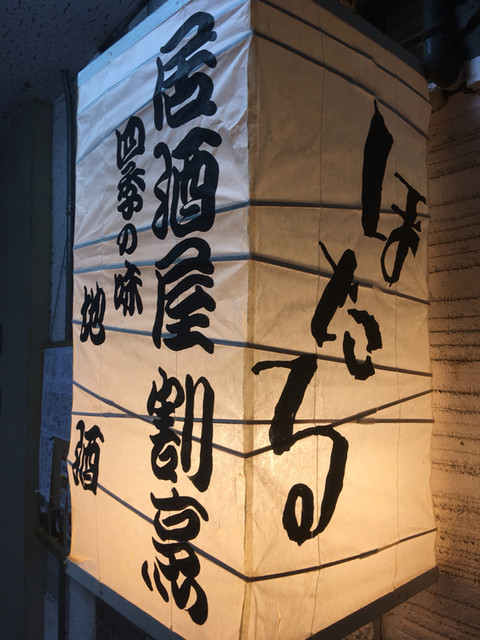 居酒屋 割烹
四季の味
地酒
ほたる